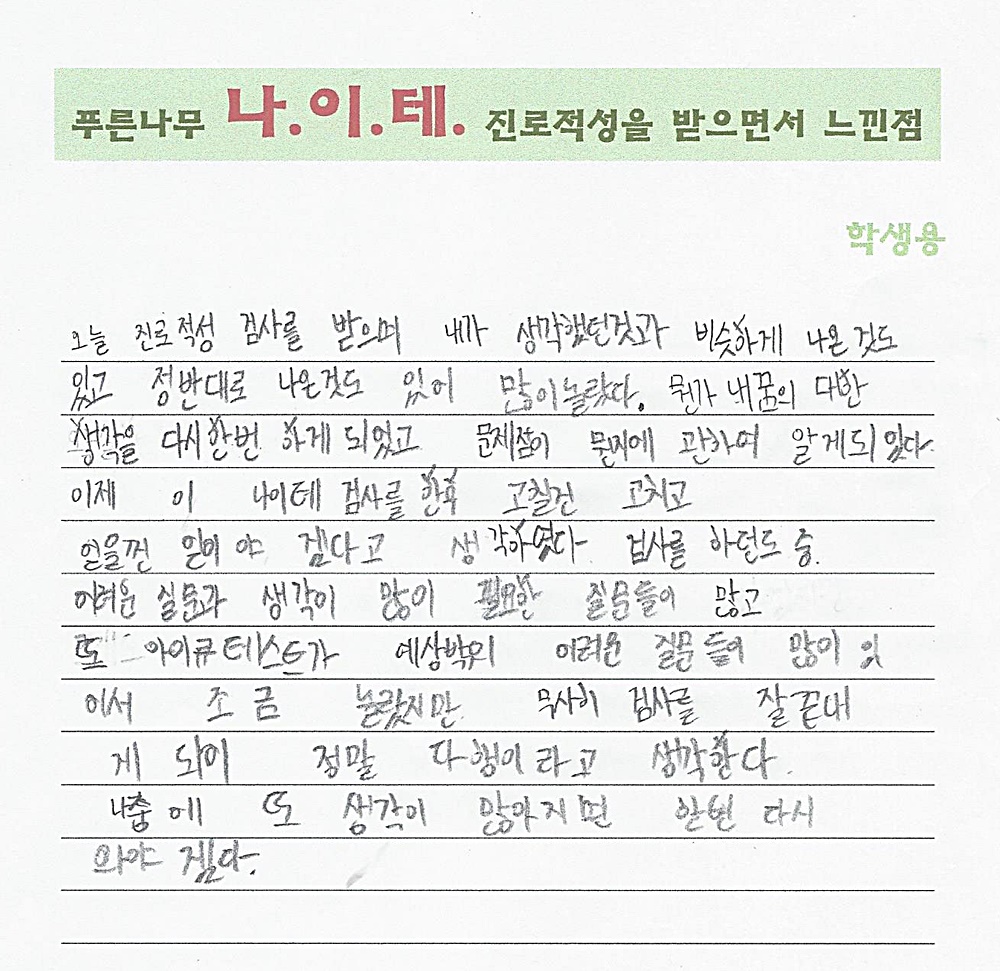 푸른나무 나.이.테. 진로적성을 받으면서 느낀점
학생용
오늘 진로적성 검사를 받으며 내가 생각했던것과 비슷하게 나온 것도
있고 정반대로 나온것도 있어 많이 놀랐다. 뭔가 내 꿈의 대한
생각을 다시 한번 하게 되었고 문제점이 뭔지에 관하여 알게되 있다.
이제 이 나이테 검사를 한후 고칠건 고치고
일이 야 겠다고 생각하였다 검사를 하던도 중.
어려운 질문과 생각이 많이 필요한 질문들이 많고
또 아이큐 테스트가 예상밖의 어려운 질문 들이 많이 있
어서 조금 놀랐지만 무사히 검사를 잘 끝내
게 되어 정말 다행이 라고 생각한다.
나중에 또 생각이 많아 지면 한번 다시
와야 겠다.